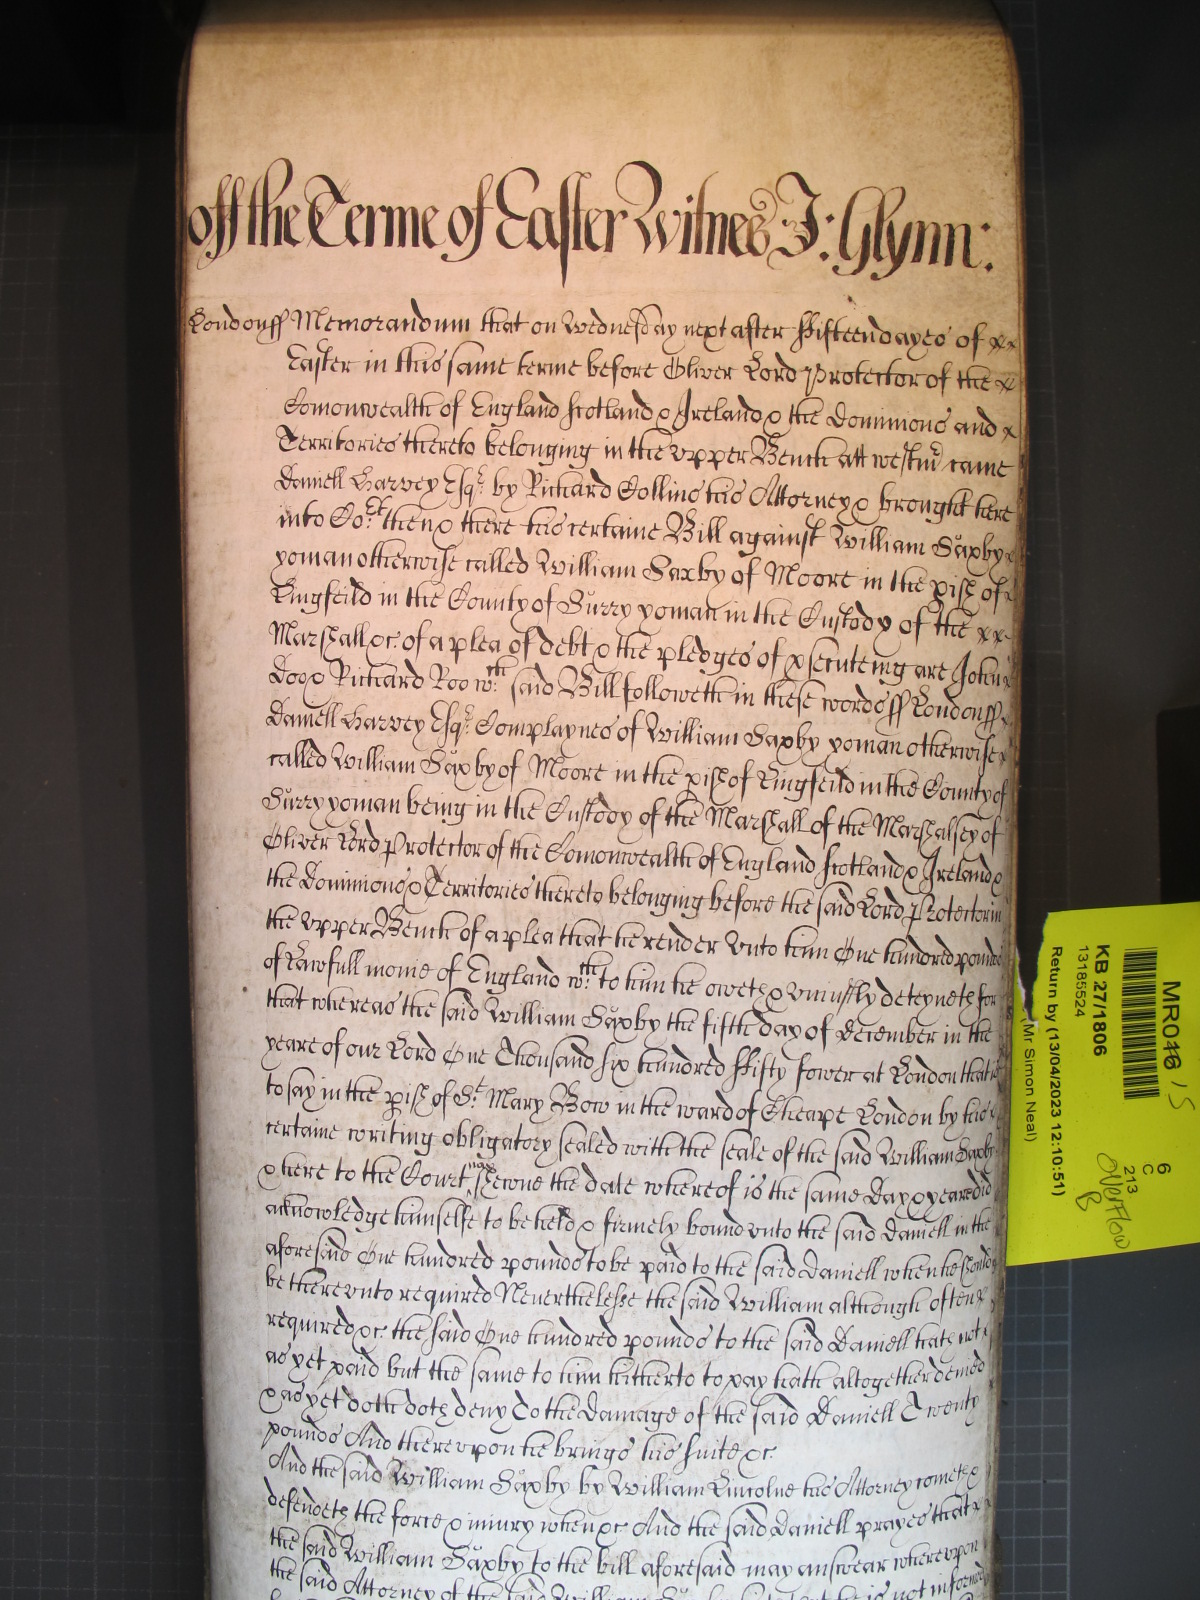 off the Terme of Easter Witnes J: Glynn:
London ff Memorandum that on Wednesday next after ffifteen dayes of xx
Easter in this same terme before Oliver Lord Protector of the x
Comonwealth of England Scotland & Ireland & the Dominions and x
Territories thereto belonging in the Upper Bench att Westmr came
Daniell Harvey Esqr. by Richard Collins his Attorney & brought here
into Co:rt then & there his certaine Bill against William Saxby x
yoman otherwise called William Saxby of Moore in the pish of x
Lingfeild in the County of Surry yoman in the Custody of the xx
Marshall &c. of a plea of debt & the pledges of psecuteing are John x
Doo & Richard Roo w:ch said Bill followeth in these words ff London ff x
Daniell Harvey Esqr. Complaynes of William Saxby yoman otherwise x
called William Saxby of Moore in the pish of Lingfeild in the County of
Surry yoman being in the Custody of the Marshall of the Marshalsey of
Oliver Lord Protector of the Comonwealth of England Scotland & Ireland &
the Dominions & Territories thereto belonging before the said Lord Protector in
the Upper Bench of a plea that he render vnto him One hundred pounds
of Lawfull monie of England w:ch to him he oweth & vniustly deteyneth for
that whereas the said William Saxby the fifth day of December in the
yeare of our Lord One Thousand six hundred ffifty fower at London that is
to say in the pish of St Mary Bow in the ward of Cheape London by his x
certaine writing obligatory sealed with the seale of the said William Saxby
& here to the Court now shewne the date whereof is the same Day & yeare did
acknowledge himselfe to be held & firmely bound vnto the said Daniell in the
aforesaid One hundred pounds to be paid to the said Daniell when he should
be therevnto required Neverthelesse the said William although often x
required &c. the said One hundred pounds to the said Daniell hath not x
as yet paid but the same to him hitherto to pay hath altogether denied
& as yet doth doth deny To the Damage of the said Daniell Twenty
pounds And therevpon he brings his suite &c.
And the said William Saxby by William Lincolne his Attorney cometh &
defendeth the force & iniury when &c And the said Daniell prayes that x
the said William Saxby to the bill aforesaid may answear wherevpon
the said Attorney of the said William is not informed
MR046 15
KB 27/1806
13185524
Return by (13/04/2023 12:10:51)
(Mr Simon Neal)
6
C
213
Overflow
B